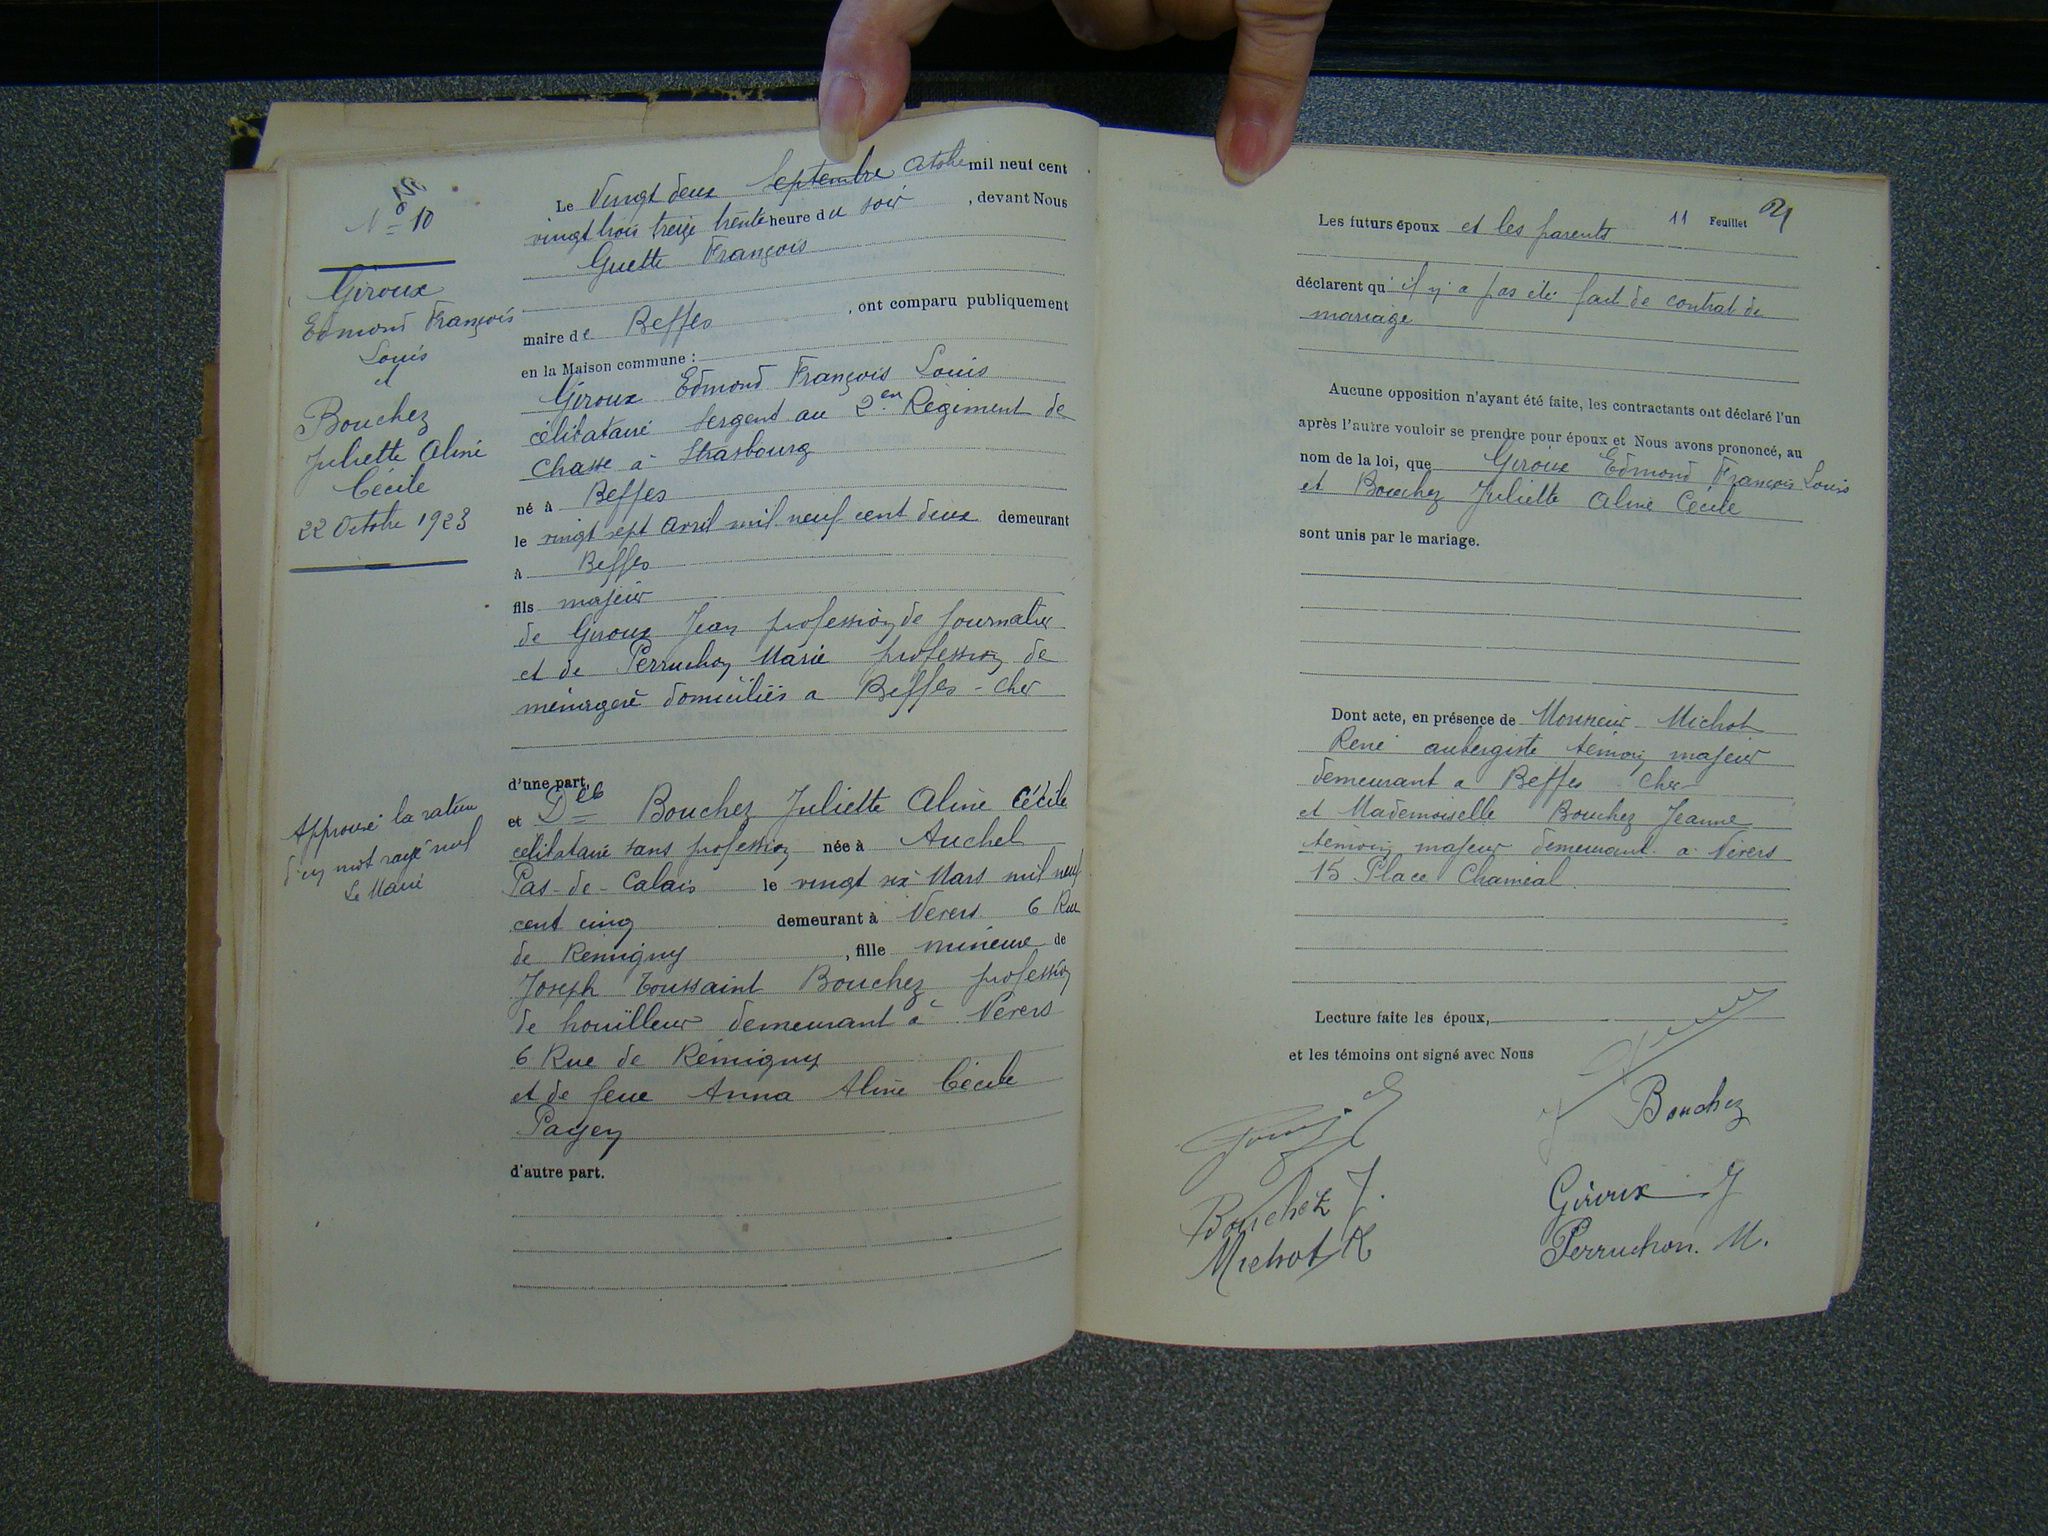 N° 10
Giroux
Edmond François
Louis
et
Bouchez
Juliette Aline
Cécile
22 Octobre 1923
Approuvé la rature
d'un mot rayé nul
Le Maire
Le Vingt deux Septembre Octobre mil neuf cent
vingt trois treize trente heure du soir, devant Nous
Guette François
maire de Beffes, ont comparu publiquement
en la Maison commune :
Giroux Edmond François Louis
célibataire Sergent au 2en Régiment de
Chasse à Strasbourg
né à Beffes
le vingt sept Avril mil neuf cent deux demeurant
à Beffes
fils majeur
de Giroux Jean profession de journalier
et de Perruchon Marie profession de
ménagère domiciliés a Beffes - Cher
d'une part,
et Dlle Bouchez Juliette Aline Cécile
célibataire sans profession née à Auchel
Pas-de-Calais le vingt six Mars mil neuf
cent cinq demeurant à Nevers 6 Rue
de Rémigny, fille mineure de
Joseph Toussaint Bouchez profession
de houilleur demeurant à Nevers
6 Rue de Rémigny
et de feue Anna Aline Cécile
Payen
d'autre part.
11 Feuillet
Les futurs époux et les parents
déclarent qu'il n'y a pas été fait de contrat de
mariage
Aucune opposition n'ayant été faite, les contractants ont déclaré l'un
après l'autre vouloir se prendre pour époux et Nous avons prononcé, au
nom de la loi, que Giroux Edmond François Louis
et Bouchez Juliette Aline Cécile
sont unis par le mariage.
Dont acte, en présence de Monsieur Michot
René aubergiste témoin majeur
demeurant a Beffes Cher
et Mademoiselle Bouchez Jeanne
témoin majeur demeurant a Nevers
15 Place Chaméal
Lecture faite les époux,
et les témoins ont signé avec Nous
Bouchez
Bouchez J.
Giroux J
Michot R
Perruchon. M.